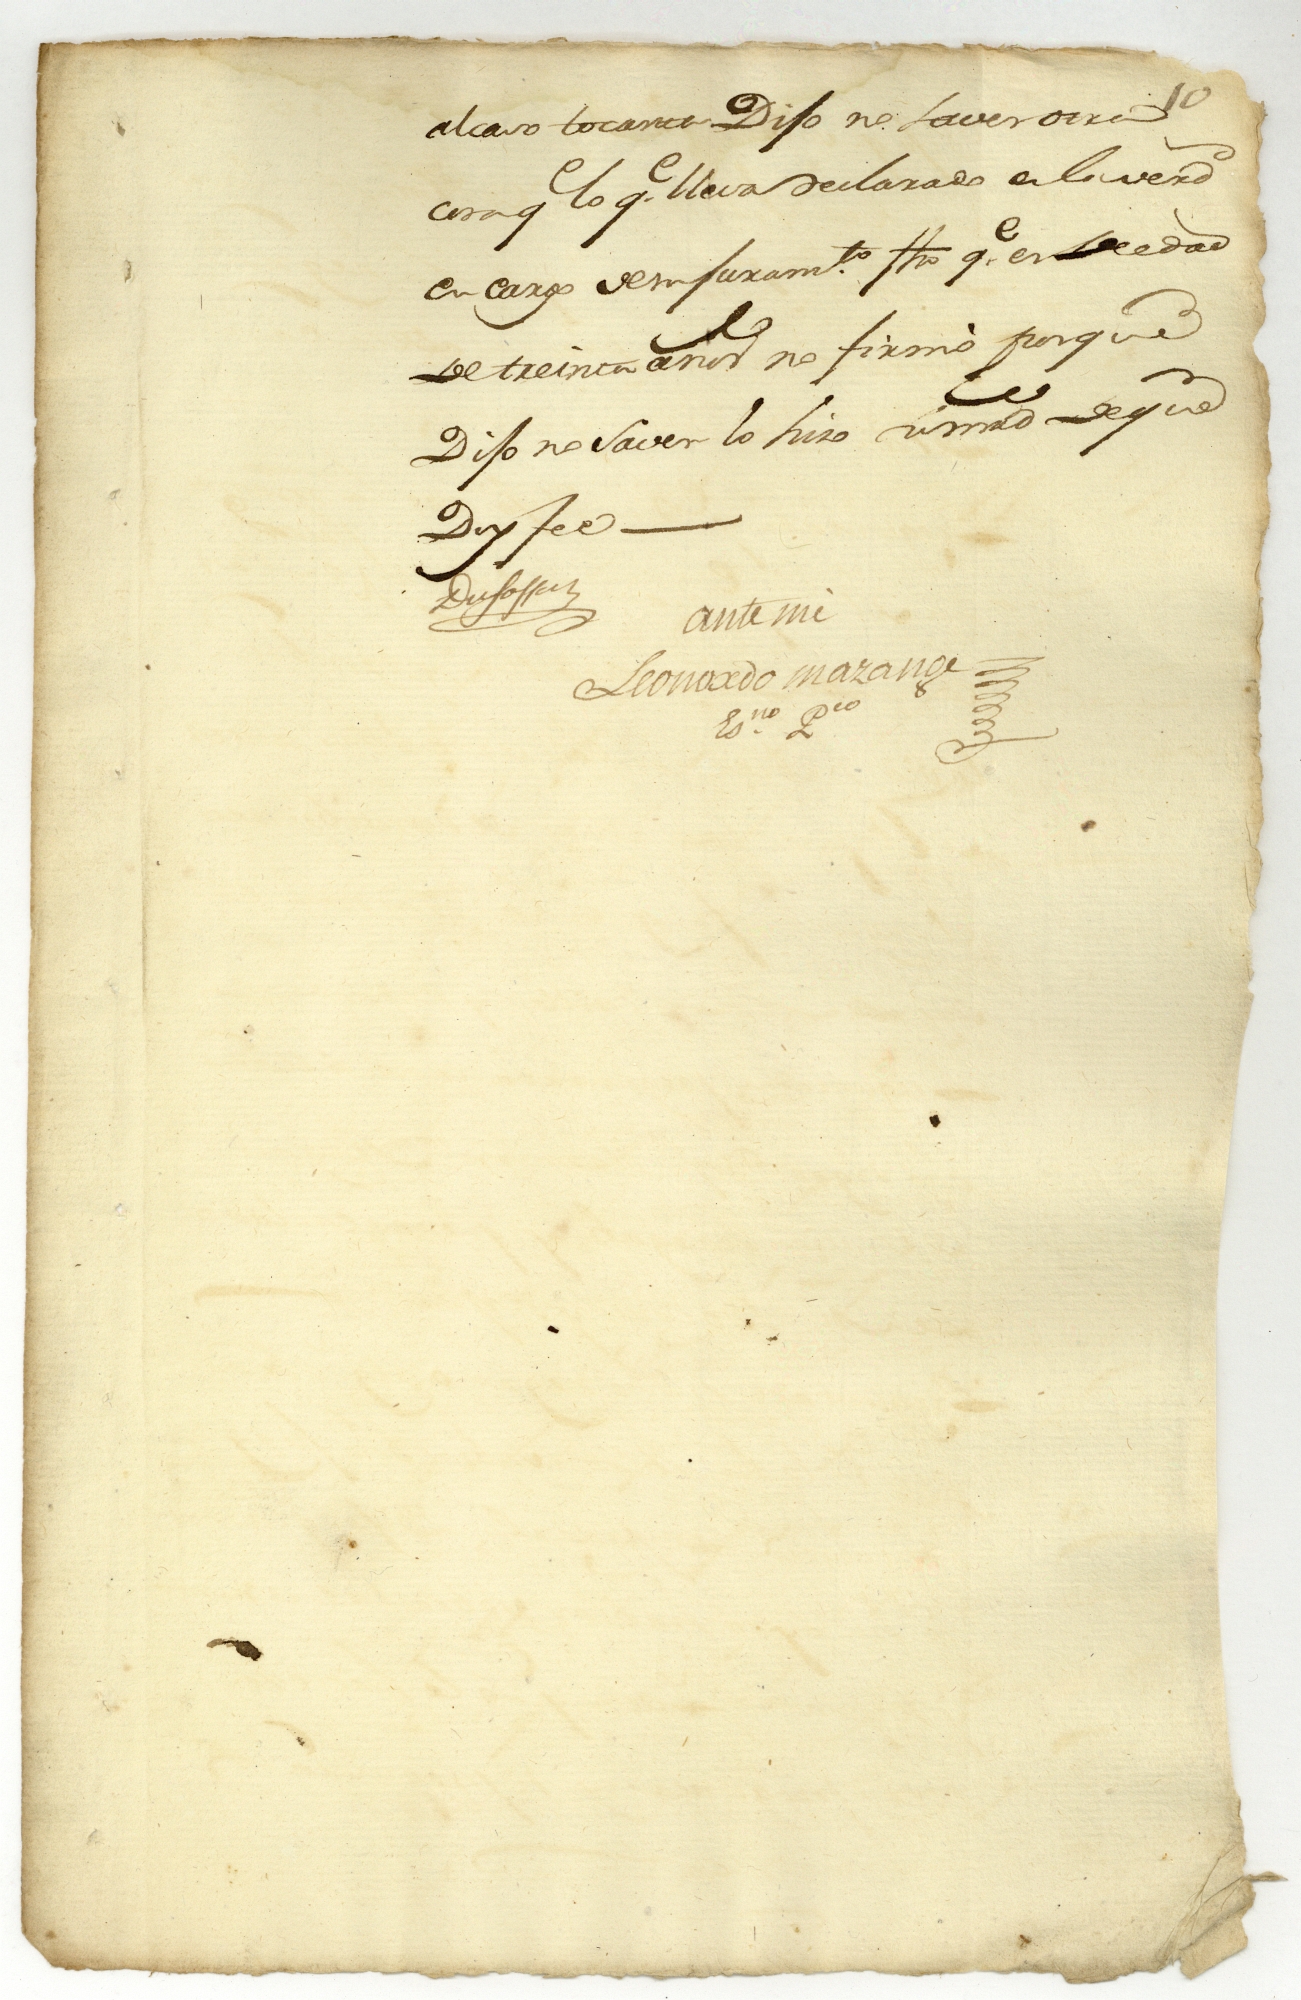 10
al caso tocante Dijo no saver otra
cosa q.e lo q.e lleva declarado es la verd.d
en cargo de su juram.to fho q.e es de edad
de treinta años no firmó porque
Dijo no saver lo hizo su mrd de que
Doy fee —
ante mi
Leonardo mazange
Es.no P.co